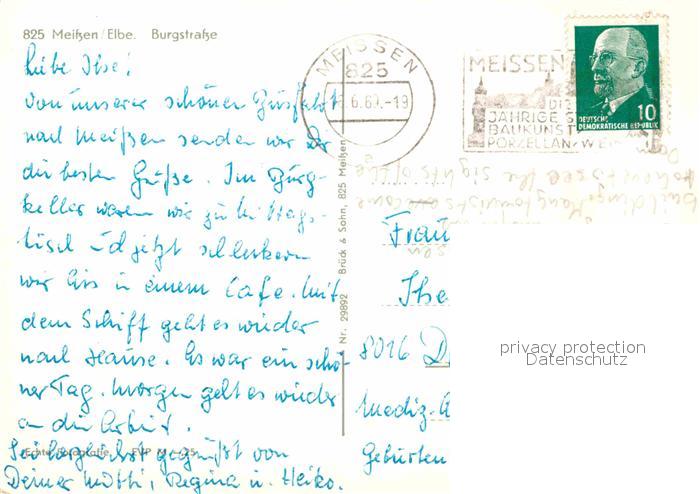 825 Meißen/Elbe. Burgstraße
Liebe Ilse!
Von unserer schönen Busfahrt
nach Meißen senden wir Dir
die besten Grüße. Im Burg-
keller waren wir zu Mittags-
tisch und jetzt schleckern
wir Eis in einem Cafe. Mit
dem Schiff geht es wieder
nach Hause. Es war ein schö-
ner Tag. Morgen geht es wieder
an die Arbeit.
Sei herzlichst gegrüßt von
Deiner Mutti, Regina u. Heiko.
Echte Fotografie
Nr. 29892 Brück & Sohn, 825 Meißen
MEISSEN
825
6.69.-19
MEISSEN
JÄHRIGE
BAUKUNST
PORZELLAN
10
DEUTSCHE
DEMOKRATISCHE REPUBLIK
buildings. Many tourists come
to see the sights of the
Frau
8016 D
Mediz-A
Geburten
privacy protection
Datenschutz